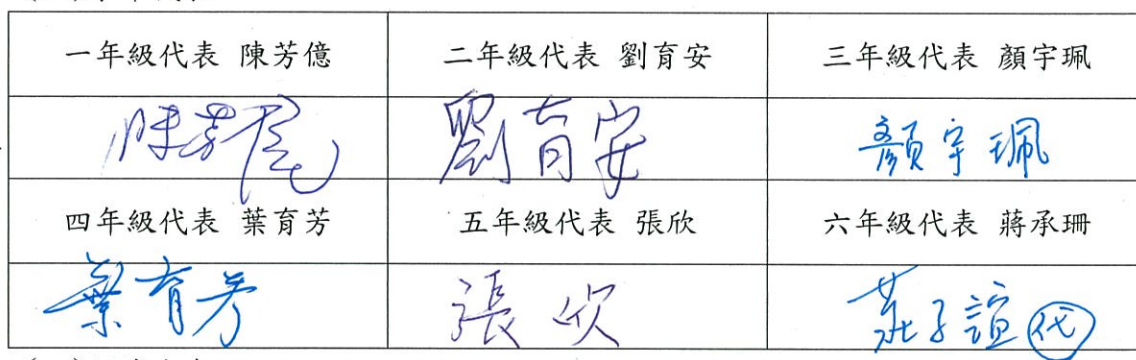 一年級代表 陳芳億 二年級代表 劉育安 三年級代表 顏宇珮
陳芳億 劉育安 顏宇珮
四年級代表 葉育芳 五年級代表 張欣 六年級代表 蔣承珊
葉育芳 張欣 莊子誼代